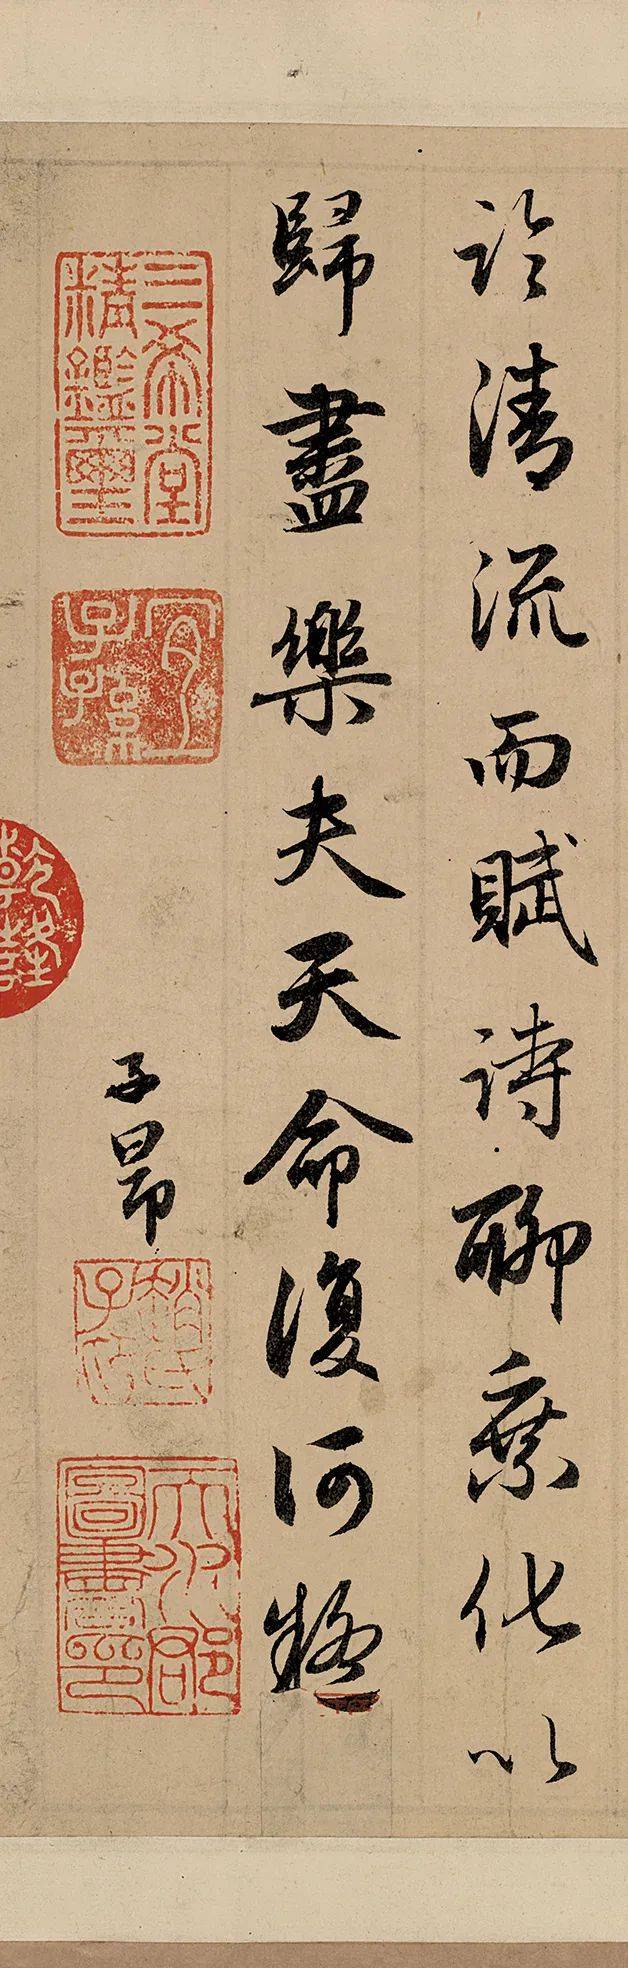 臨清流而賦詩聊乘化以
歸盡樂夫天命復何疑
子昂
三希堂
精鑑璽
宜
子孫
乾隆
趙氏
子昂
天水郡
圖書印